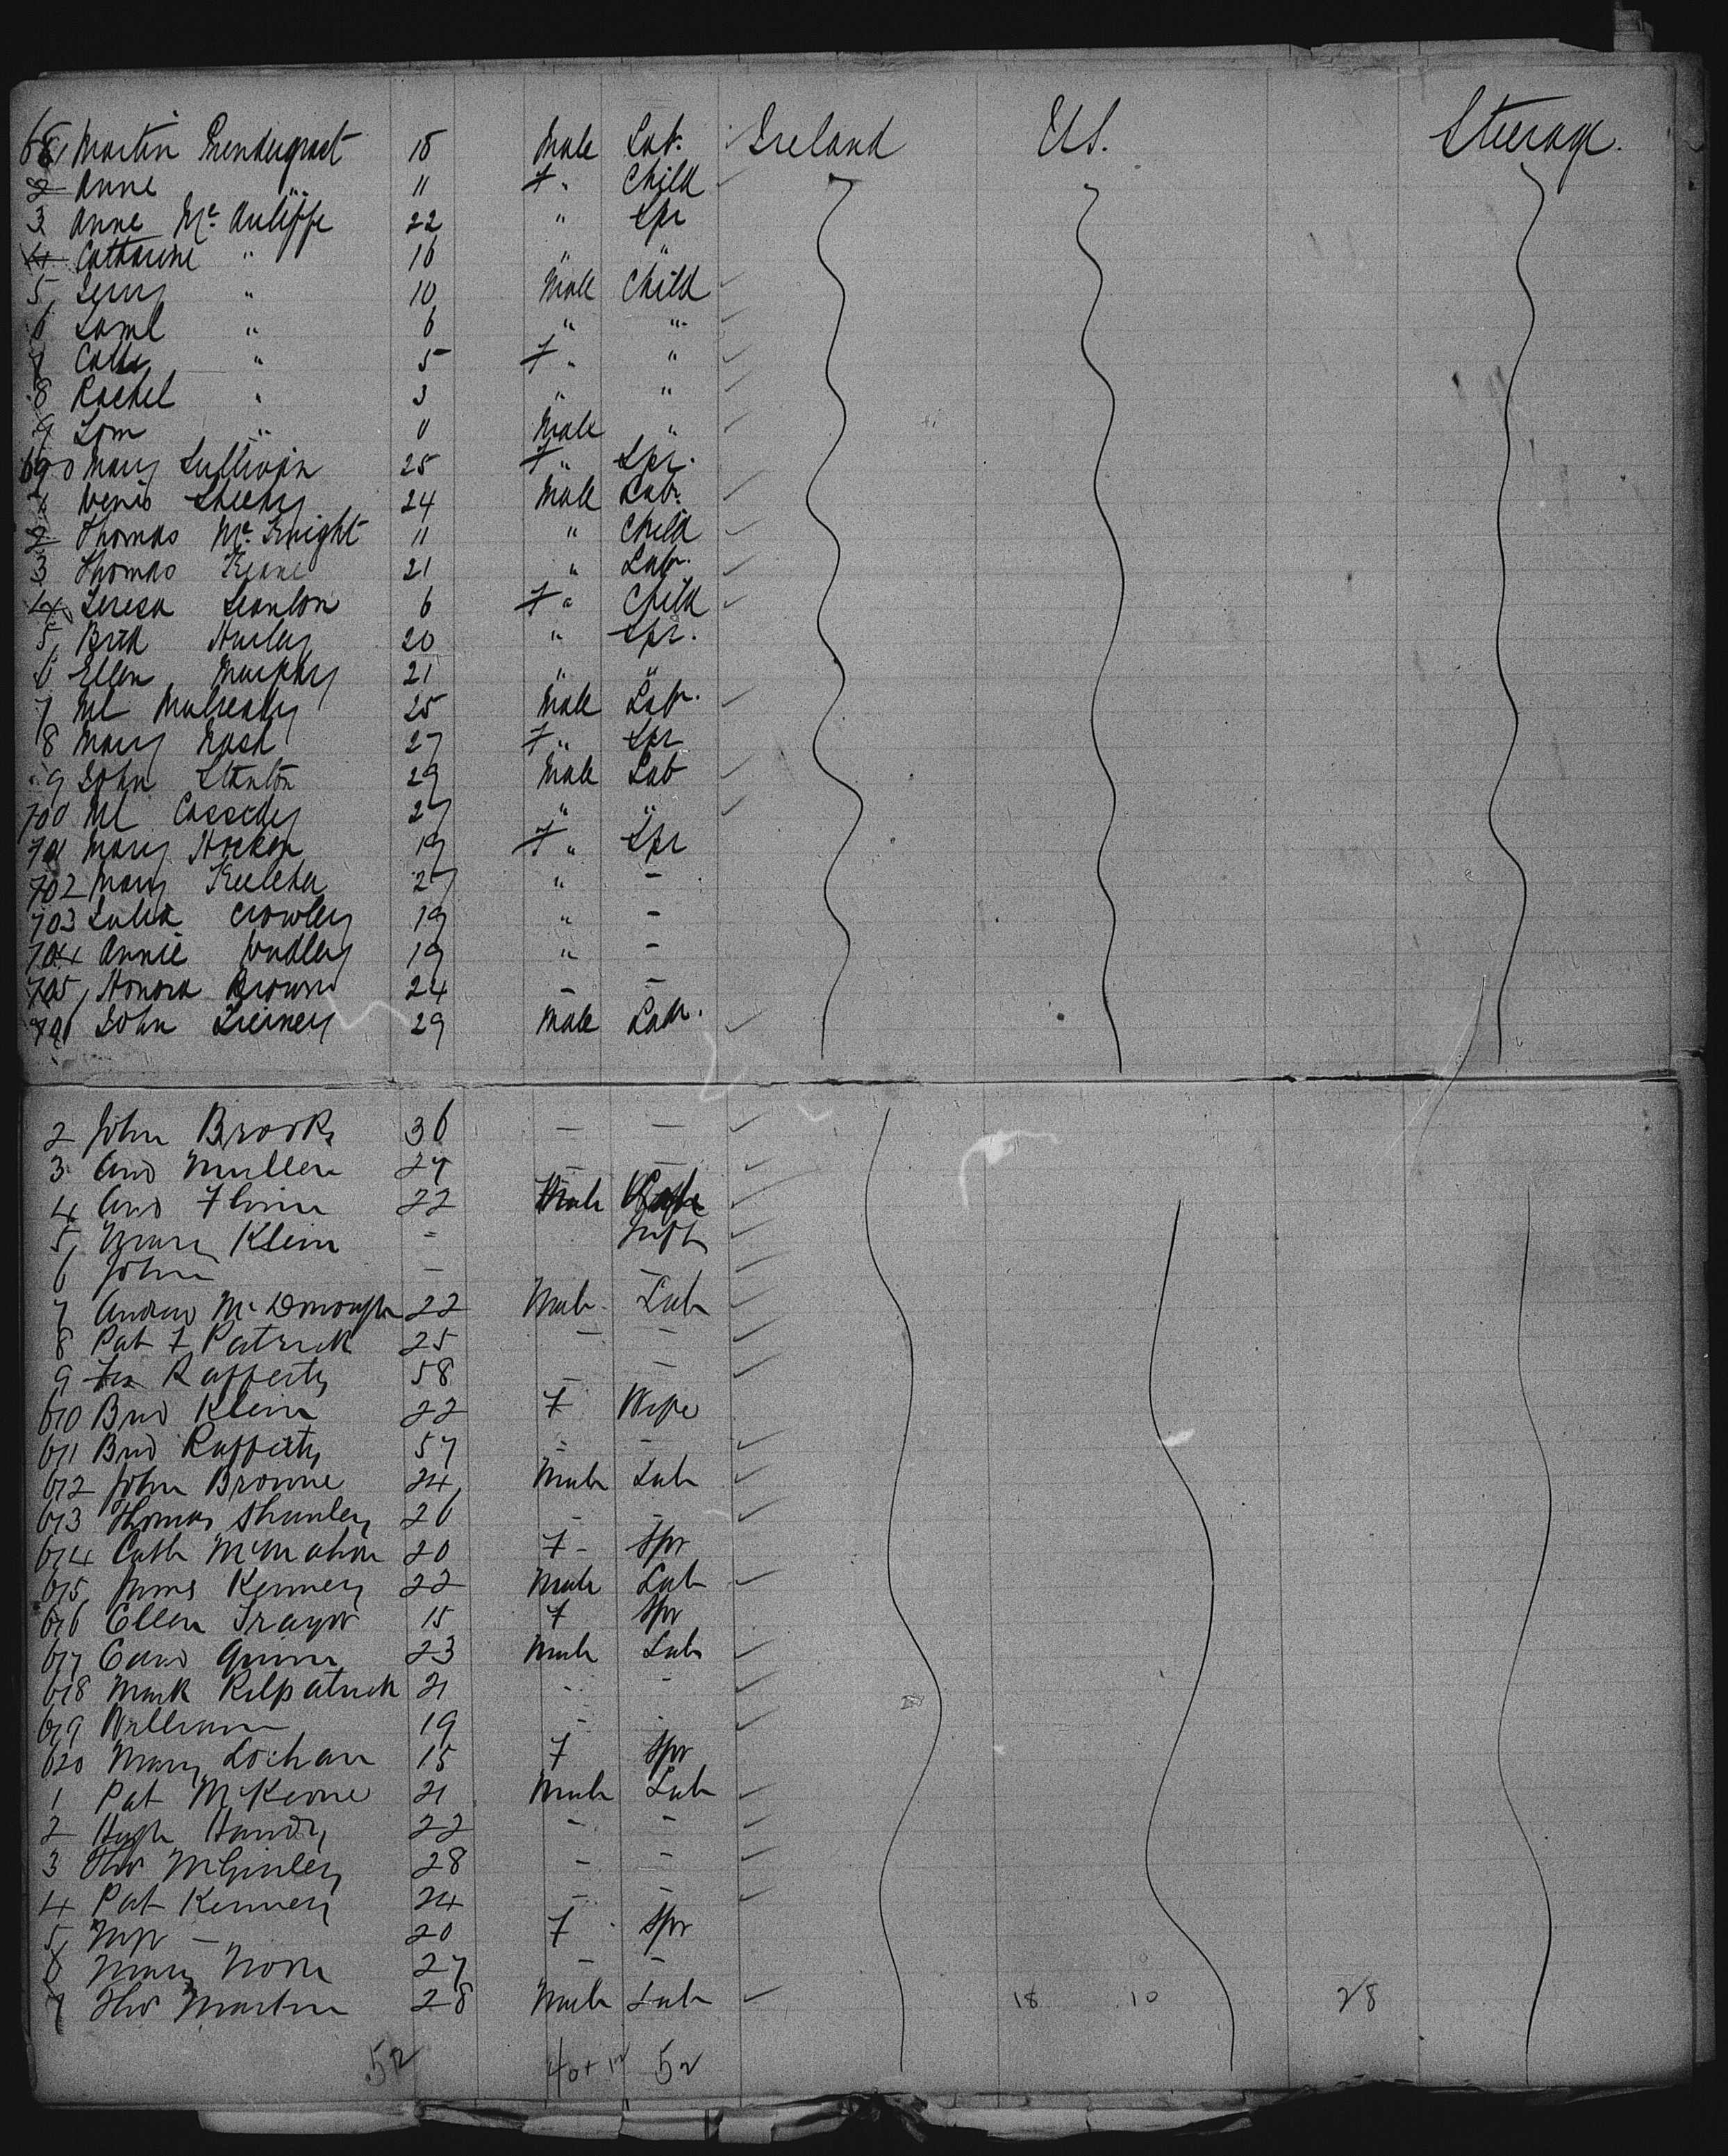 681 Martin Prendergast 18 Male Lab. Ireland U.S. Steerage.
2 Anne " 11 F " Child
3 Anne Mc Auliffe 22 " Spr
4 Catharine " 16 " "
5 " 10 Male Child
6 Saml " 6 " "
7 Cathe " 5 F " "
8 Rachel " 3 " "
9 Tom " 0 Male "
690 Mary Sullivan 25 F " Spr.
1 Denis Sheehy 24 Male Labr.
2 Thomas Mc Knight 11 " Child
3 Thomas Keane 21 " Labr.
4 Teresa Scanlon 6 F " Child
5 Brid Hurley 20 " Spr.
6 Ellen Murphy 21 " "
7 Ml 25 Male Labr.
8 Mary Nash 27 F " Spr
9 John Stanton 29 Male Lab
700 Ml Cassedy 27 " "
701 Mary 19 F " Spr
702 Mary Keleher 27 " -
703 Julia Crowley 19 " -
704 Annie Dudley 19 " -
705 Honora Brown 24 - -
706 John Tierney 29 Male Labr.
2 John Brooks 36 - -
3 And Mullen 27 - -
4 And Flinn 22 Male
5 Mary Klein - Inft
6 John - -
7 Andrew McDonough 22 Male Lab
8 Pat F Patrick 25 - -
9 Rafferty 58 - -
610 Brid Klein 22 F Wife
611 Brid Rafferty 57 - -
612 John Browne 24 Male Lab
613 Thomas Shanley 26 - -
614 Cath McMahon 20 F - Spr
615 James Kenney 22 Male Lab
616 Ellen Traynor 15 F Spr
617 Edwd Quinn 23 Male Lab
618 Mark Kilpatrick 21 - -
619 William 19 - -
620 Mary Lochan 15 F Spr
1 Pat McKeone 21 Male Lab
2 Hugh Handy 22 - -
3 Thos McGinley 28 - -
4 Pat Kenney 24 - -
5 - 20 F Spr
6 Mary 27 - -
7 Thos Martin 28 Male Lab 18 10 28
52 40+12 52